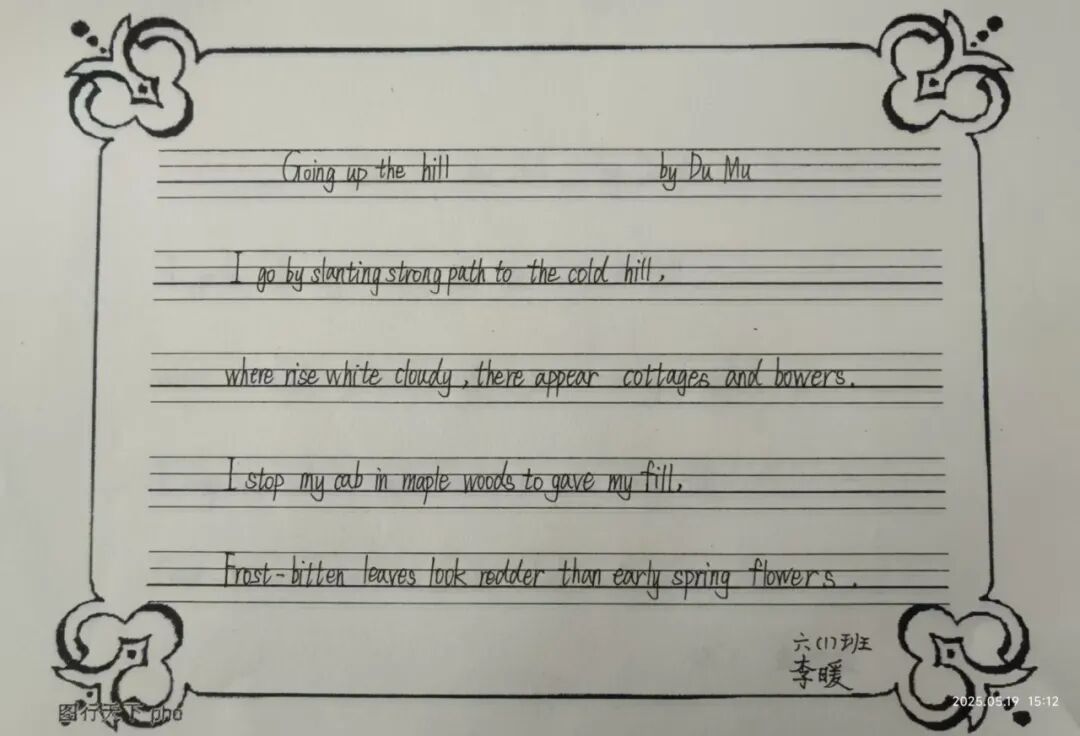 Going up the hill by Du Mu
I go by slanting strong path to the cold hill,
where rise white cloudy, there appear cottages and bowers.
I stop my cab in maple woods to gave my fill,
Frost-bitten leaves look redder than early spring flowers.
六(1)班
李暖
图行天下 pho
2025.05.19 15:12